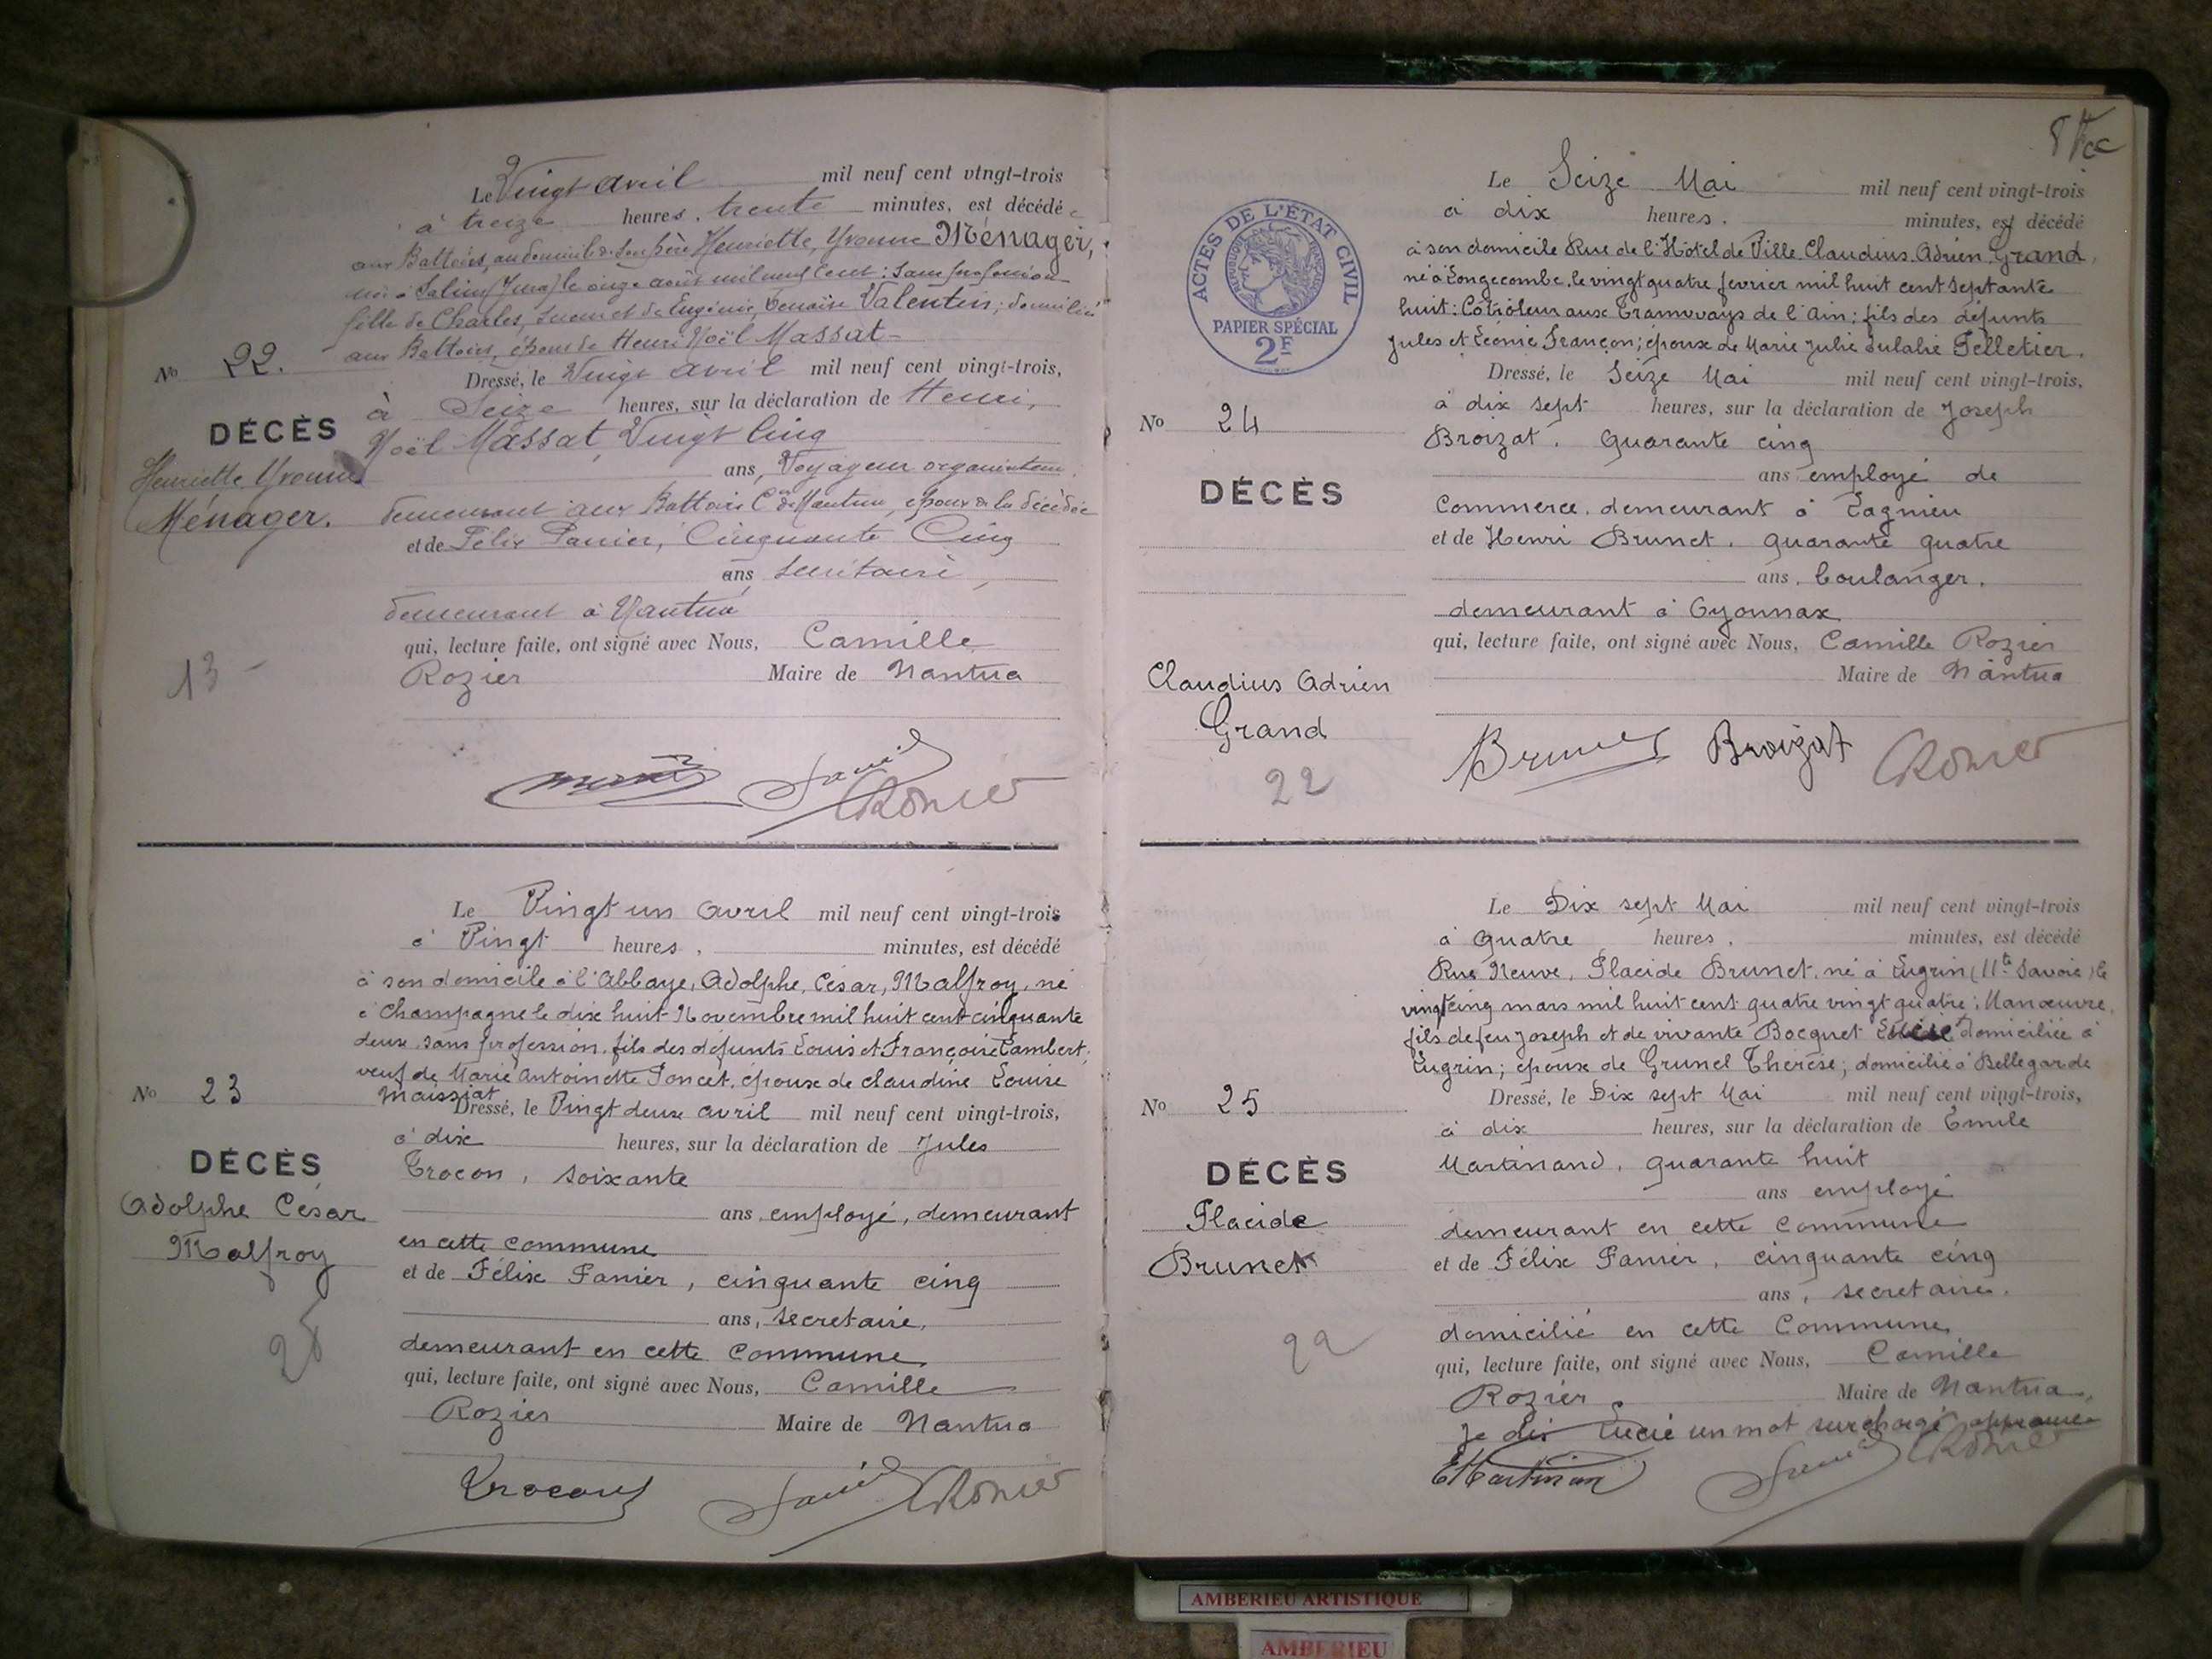 Le Vingt avril mil neuf cent vingt-trois
à treize heures, trente minutes, est décédée
aux Battoirs, au domicile de son père Henriette, Yvonne Ménager,
née à Salins (Jura) le onze août mil neuf cent : sans profession
fille de Charles, et de Eugénie, Valentin ; domiciliée
aux Battoirs, épouse de Henri Noël Massat
No 22.
Dressé, le Vingt avril mil neuf cent vingt-trois,
à Seize heures, sur la déclaration de Henri,
DÉCÈS
Noël Massat, Vingt cinq
ans, Voyageur
Henriette Yvonne
Ménager.
demeurant aux Battoirs Cne de Nantua, époux de la décédée
et de Félix Panier, Cinquante Cinq
ans secrétaire,
demeurant à Nantua
qui, lecture faite, ont signé avec Nous, Camille
Rozier Maire de Nantua
13
Le Vingt un avril mil neuf cent vingt-trois
à Vingt heures, minutes, est décédé
à son domicile à l'Abbaye, Adolphe, César, Malfroy, né
à Champagne le dix huit Novembre mil huit cent cinquante
deux sans profession, fils des défunts Louis et Françoise Lambert ;
veuf de Marie Antoinette Poncet, époux de Claudine Louise
Maissiat
No 23
Dressé, le Vingt deux avril mil neuf cent vingt-trois,
à dix heures, sur la déclaration de Jules
DÉCÈS
Trocon, soixante
ans, employé, demeurant
Adolphe César
Malfroy
en cette commune
et de Félix Panier, cinquante cinq
ans, secretaire,
demeurant en cette commune,
qui, lecture faite, ont signé avec Nous, Camille
Rozier Maire de Nantua
Trocon
8
ACTES DE L'ÉTAT CIVIL
RÉPUBLIQUE FRANÇAISE
PAPIER SPÉCIAL
2F
Le Seize Mai mil neuf cent vingt-trois
à dix heures. minutes, est décédé
à son domicile Rue de l'Hôtel de Ville Claudius Adrien Grand,
né à Longecombe, le vingt quatre fevrier mil huit cent septante
huit : Cotrôleur aux Tramways de l'Ain ; fils des défunts
Jules et Léonie Françon ; époux de Marie Julie Eulalie Pelletier.
Dressé, le Seize Mai mil neuf cent vingt-trois,
à dix sept heures, sur la déclaration de Joseph
No 24
Broizat. quarante cinq
ans employé de
DÉCÈS
Commerce, demeurant à Lagnieu
et de Henri Brunet, quarante quatre
ans, boulanger.
demeurant à Oyonnax
qui, lecture faite, ont signé avec Nous, Camille Rozier
Maire de Nantua
Claudius Adrien
Grand
22
Brunet Broizat CRozier
Le Dix sept Mai mil neuf cent vingt-trois
à quatre heures, minutes, est décédé
Rue Neuve, Placide Brunet, né à Lugrin (Hte Savoie) le
vingt cinq mars mil huit cent quatre vingt quatre ; Manœuvre,
fils de feu Joseph et de vivante Bocquet Lucie domiciliée à
Lugrin ; époux de Grunel Thérèse ; domicilié à Bellegarde
No 25
Dressé, le Dix sept Mai mil neuf cent vingt-trois,
à dix heures, sur la déclaration de Emile
DÉCÈS
Martinand, quarante huit
ans employé
Placide
Brunet
demeurant en cette commune
et de Félix Panier, cinquante cinq
ans, secretaire.
domicilié en cette Commune,
qui, lecture faite, ont signé avec Nous, Camille
Rozier. Maire de Nantua.
Je dis Lucie un mot surchargé approuvé
EMartinand CRozier
AMBERIEU ARTISTIQUE
AMBERIEU